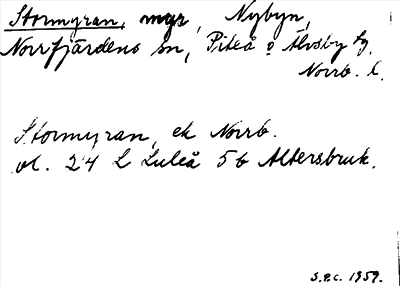 Stormyran, myr, Nybyn,
Norrfjärdens sn, Piteå o Älvsby tg.
Norrb. l.
Stormyran, ek Norrb.
vl. 24 L Luleå 56 Altersbruk.
S.P.C. 1959.